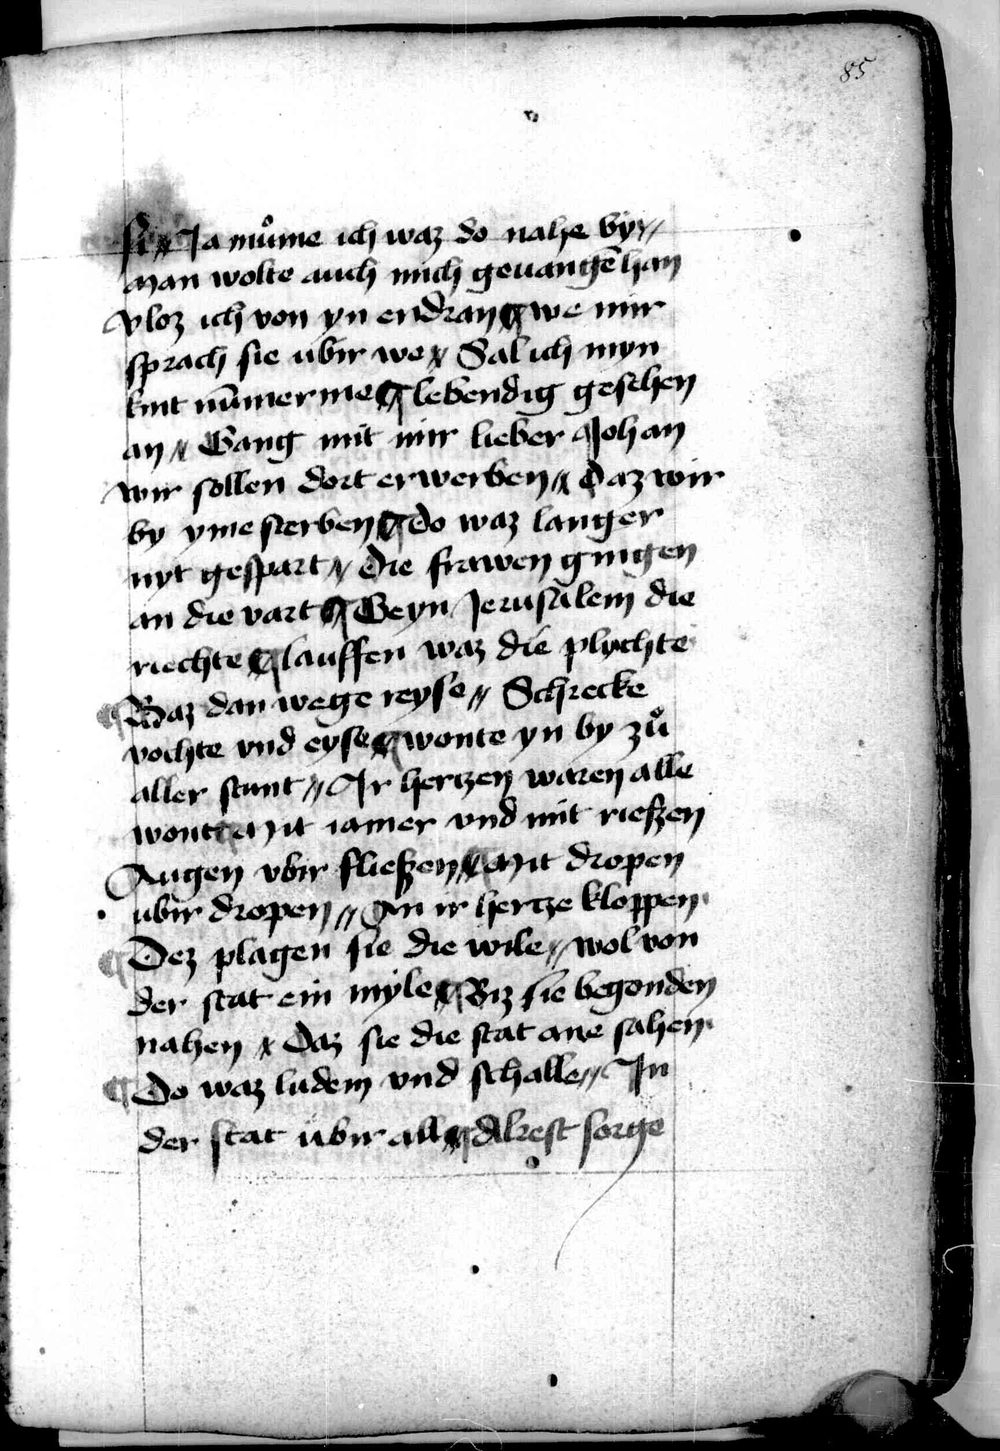 85
si // Ja můme ich waz do nahe by //
Man wolte auch mich geuangē han
Vloz ich von yn endran ¶ we mir
sprach sie ubir we // Sal ich myn
kint nūmer me ¶ lebendig gesehen
an // Gang mit mir lieber Johan
wir sollen dort erwerben // Daz wir
by yme sterben ¶ do waz langer
nyt gespart // Die frawen gingen
an die vart ¶ Geyn Jerusalem die
riechte ¶ lauffen waz die plychte
¶ Waz dan wege reyse // Schrecke
vochte vnd eyse ¶ wonte yn by zů
aller stunt // Ir hertzen waren alle
wont ¶ Mit iamer vnd mit rießen
Augen vbir fließen // Mit dropen
ubir dropen // An ir hertze kloppen
¶ Dez plagen sie die wile // wol von
der stat ein myle ¶ Biz sie begonden
nahen // Daz sie die stat ane sahen
¶ Do waz ludem vnd schalle // In
der stat ubir all ¶ Alrest sorge